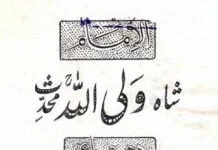 الامام
شاہ ولی اللہ محدث